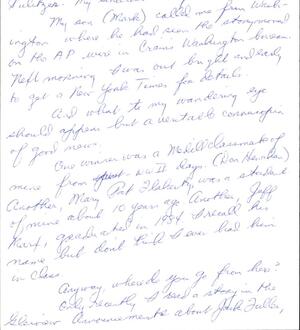 Pulitzer. My
My son (Mark) called me from Wash-
ington where he had seen the story moved
on the AP wire in Crains Washington bureau.
Next morning I was out bright and early
to get a New York Times for details.
And what to my wandering eye
should appear but a veritable cornucopia
of good news.
One winner was a Medill classmate of
mine from WW II days. (Don
Another, Mary Pat Flaherty, was a student
of mine about 10 years ago. Another, Jeff
Marx, graduated in 1984. I recall his
name but don't think I ever had him
in class.
Anyway, where'd you go from here?
Only recently I read a story in the
Glenview Announcements about Jack Fuller,